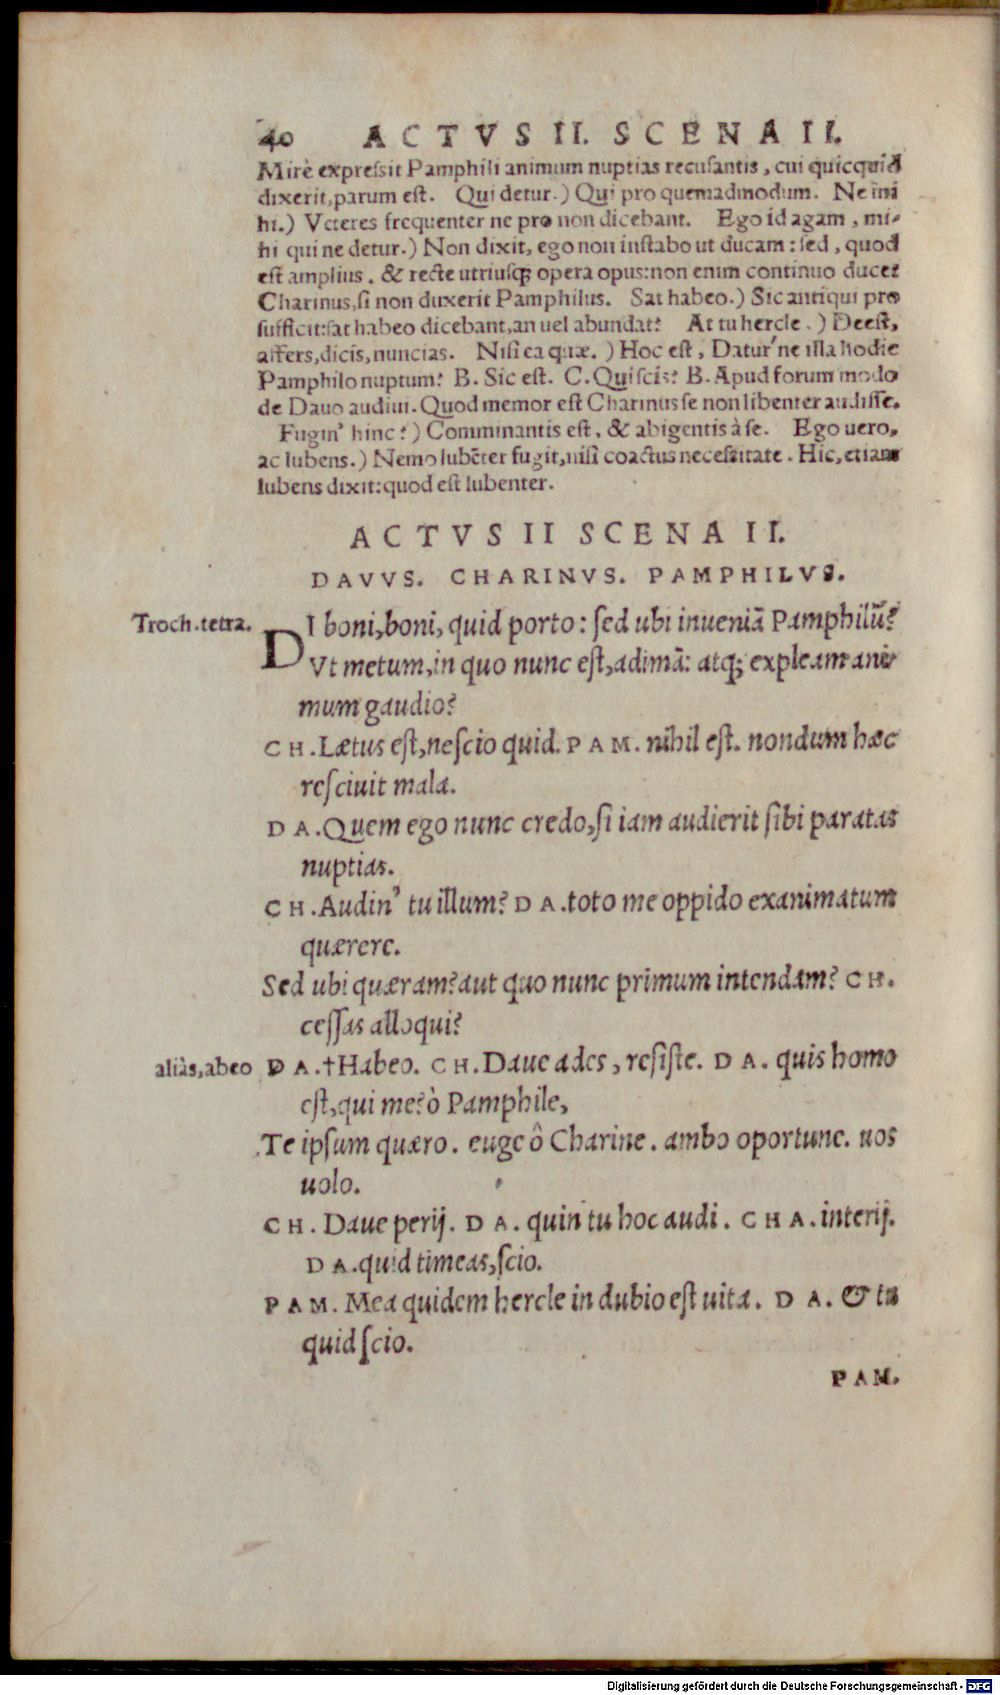 40 ACTVS II. SCENA II.
Mirè expressit Pamphili animum nuptias recusantis, cui quicquid
dixerit, parum est. Qui detur.) Qui pro quemadmodum. Ne mi
hi.) Veteres frequenter ne pro non dicebant. Ego id agam, mi-
hi qui ne detur.) Non dixit, ego non instabo ut ducam: sed, quod
est amplius. & recte utriusq; opera opus: non enim continuo ducet
Charinus, si non duxerit Pamphilus. Sat habeo.) Sic antiqui pro
sufficit: sat habeo dicebant, an uel abundat? At tu hercle.) Deest,
affers, dicis, nuncias. Nisi ea quæ.) Hoc est, Datur'ne illa hodie
Pamphilo nuptum? B. Sic est. C. Qui scis? B. Apud forum modo
de Dauo audiui. Quod memor est Charinus se non libenter audisse.
Fugin' hinc?) Comminantis est, & abigentis à se. Ego uero,
ac lubens.) Nemo lubēter fugit, nisi coactus necessitate. Hic, etiam
lubens dixit: quod est lubenter.
ACTVS II SCENA II.
DAVVS. CHARINVS. PAMPHILVS.
Troch. tetra. DI boni, boni, quid porto: sed ubi inueniā Pamphilū?
Vt metum, in quo nunc est, adimā: atq; expleam ani
mum gaudio?
CH. Lætus est, nescio quid. PAM. nihil est. nondum hæc
resciuit mala.
DA. Quem ego nunc credo, si iam audierit sibi paratas
nuptias.
CH. Audin' tu illum? DA. toto me oppido exanimatum
quærere.
Sed ubi quæram? aut quo nunc primum intendam? CH.
cessas alloqui?
aliàs, abeo DA. †Habeo. CH. Daue ades, resiste. DA. quis homo
est, qui me? ò Pamphile,
Te ipsum quæro. euge ô Charine. ambo oportune. uos
uolo.
CH. Daue perij. DA. quin tu hoc audi. CHA. interij.
DA. quid timeas, scio.
PAM. Mea quidem hercle in dubio est uita. DA. & tu
quid scio.
PAM.
Digitalisierung gefördert durch die Deutsche Forschungsgemeinschaft - DFG